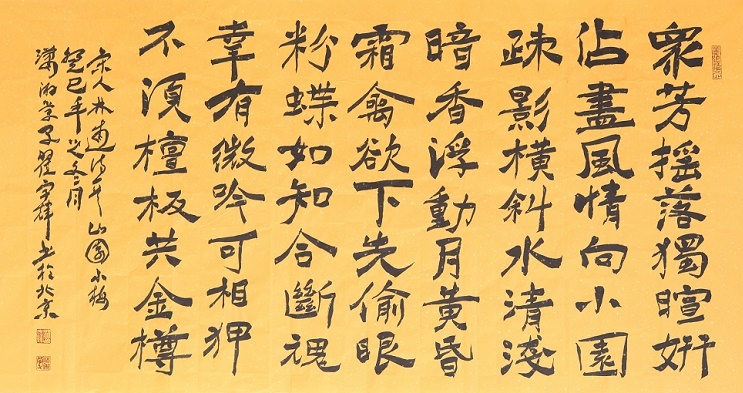 衆芳揺落獨暄妍
佔盡風情向小園
疎影橫斜水清淺
暗香浮動月黄昏
霜禽欲下先偷眼
粉蝶如知合斷魂
幸有微吟可相狎
不須檀板共金樽
宋人林逋詩 山園小梅
癸巳年 月
瀟湘 子 書於北京